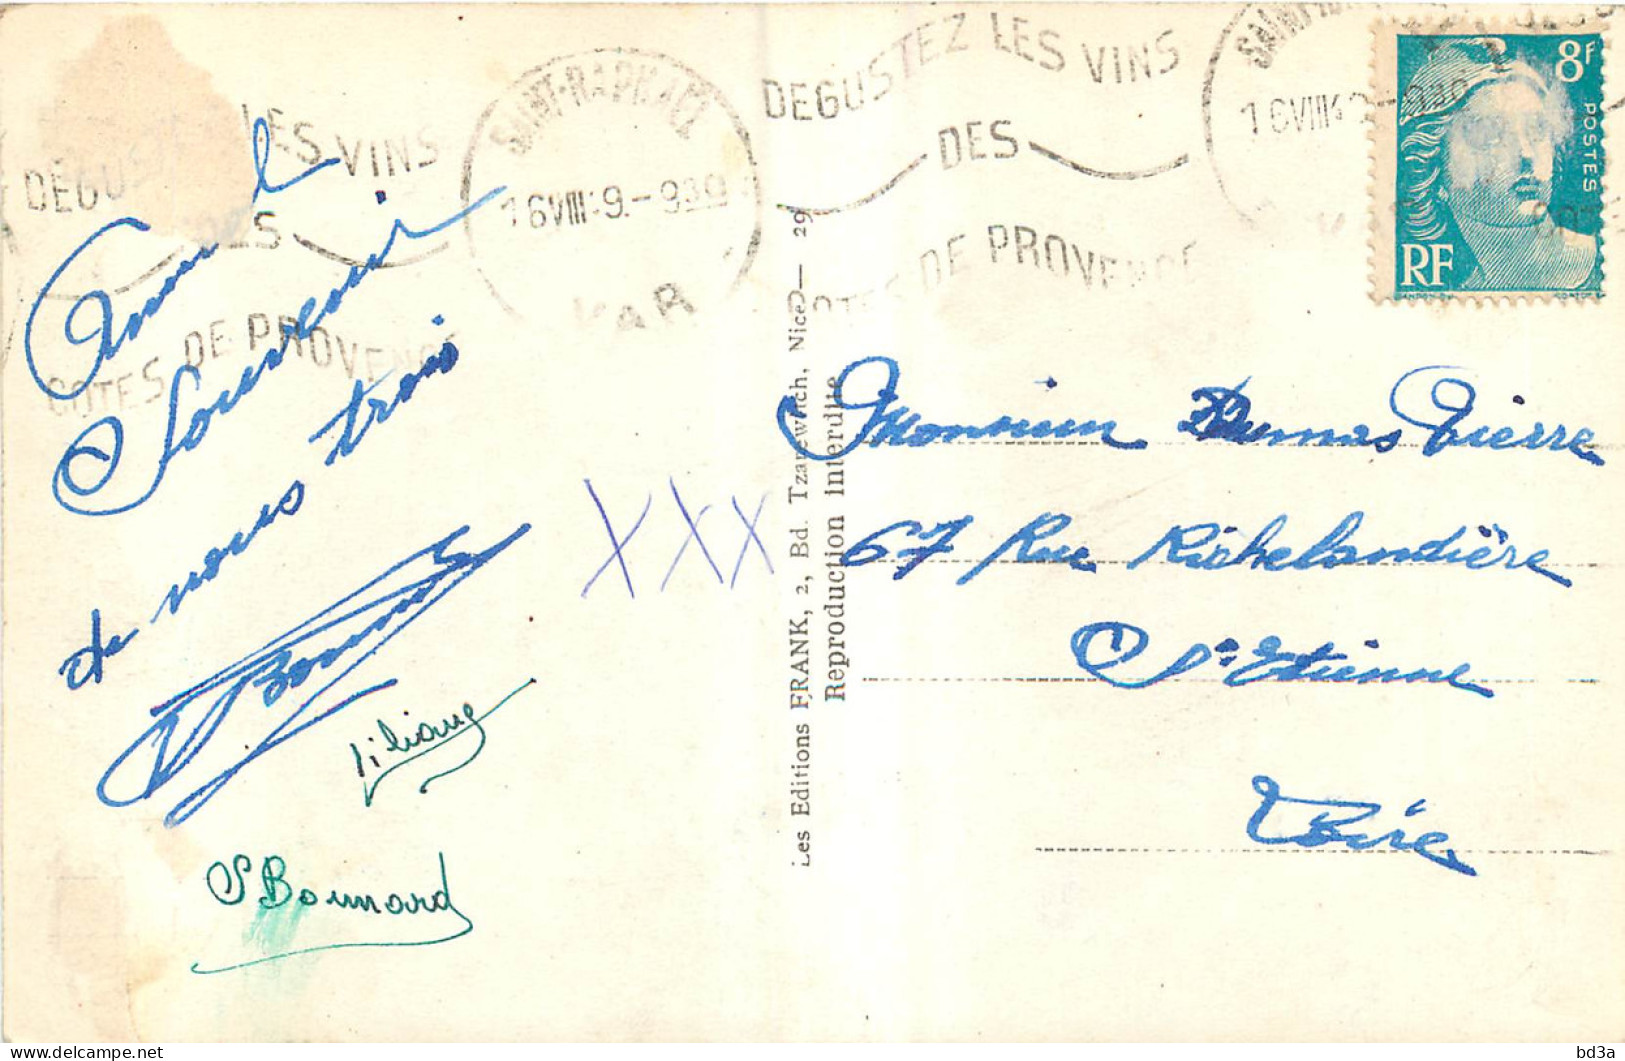 DEGUSTEZ LES VINS
DES
COTES DE PROVENCE
SAINT-RAPHAEL
16 VIII 9.-930
VAR
DEGUSTEZ LES VINS
DES
COTES DE PROVENCE
16 VIII
8F
POSTES
RF
GANDON
Amical
Souvenir
de nous trois
Bonnard
Liliane
S Bonnard
XXX
Les Editions FRANK, 2, Bd. Tzarewitch, Nice — 29
Reproduction interdite
Monsieur Dumas Pierre
67 Rue Richelandière
St-Etienne
Loire
bd3a